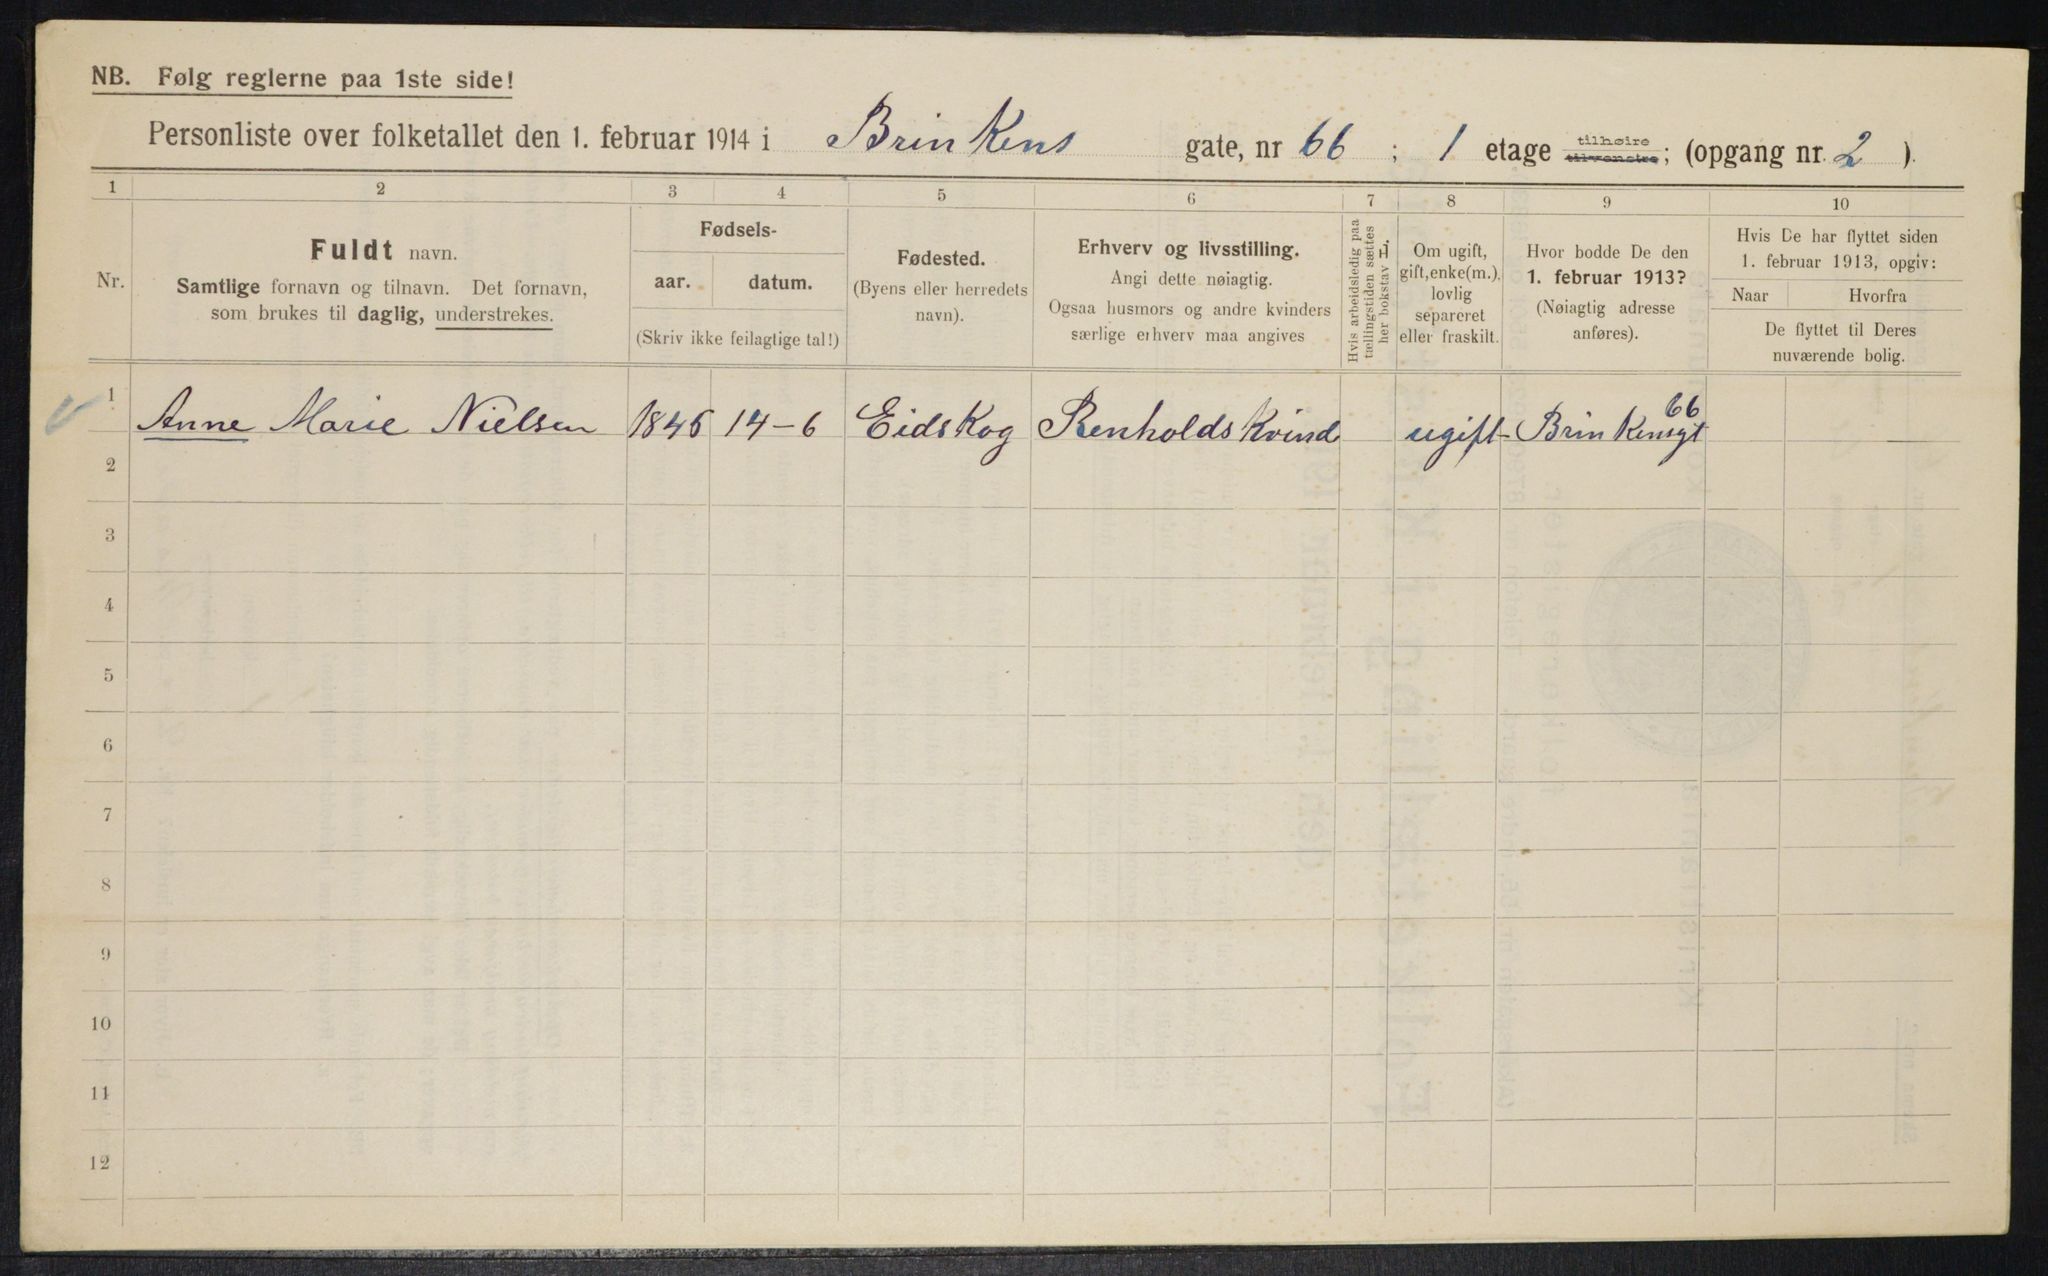 NB. Følg reglerne paa 1ste side!
Personliste over folketallet den 1. februar 1914 i Brinkens gate, nr 66 ; 1 etage tilhøire tilvenstre; (opgang nr. 2 ).
1 2 3 4 5 6 7 8 9 10
Nr.
Fuldt navn.
Samtlige fornavn og tilnavn. Det fornavn,
som brukes til daglig, understrekes.
Fødsels-
aar. datum.
(Skriv ikke feilagtige tal!)
Fødested.
(Byens eller herredets
navn).
Erhverv og livsstilling.
Angi dette nøiagtig.
Ogsaa husmors og andre kvinders
særlige erhverv maa angives
Hvis arbeidsledig paa
tællingstiden sættes
her bokstav L.
Om ugift,
gift, enke(m.),
lovlig
separeret
eller fraskilt.
Hvor bodde De den
1. februar 1913?
(Nøiagtig adresse
anføres).
Hvis De har flyttet siden
1. februar 1913, opgiv:
Naar Hvorfra
De flyttet til Deres
nuværende bolig.
1 Anne Marie Nielsen 1846 14-6 Eidskog Renholdskvind ugift Brinkensgt 66
2
3
4
5
6
7
8
9
10
11
12